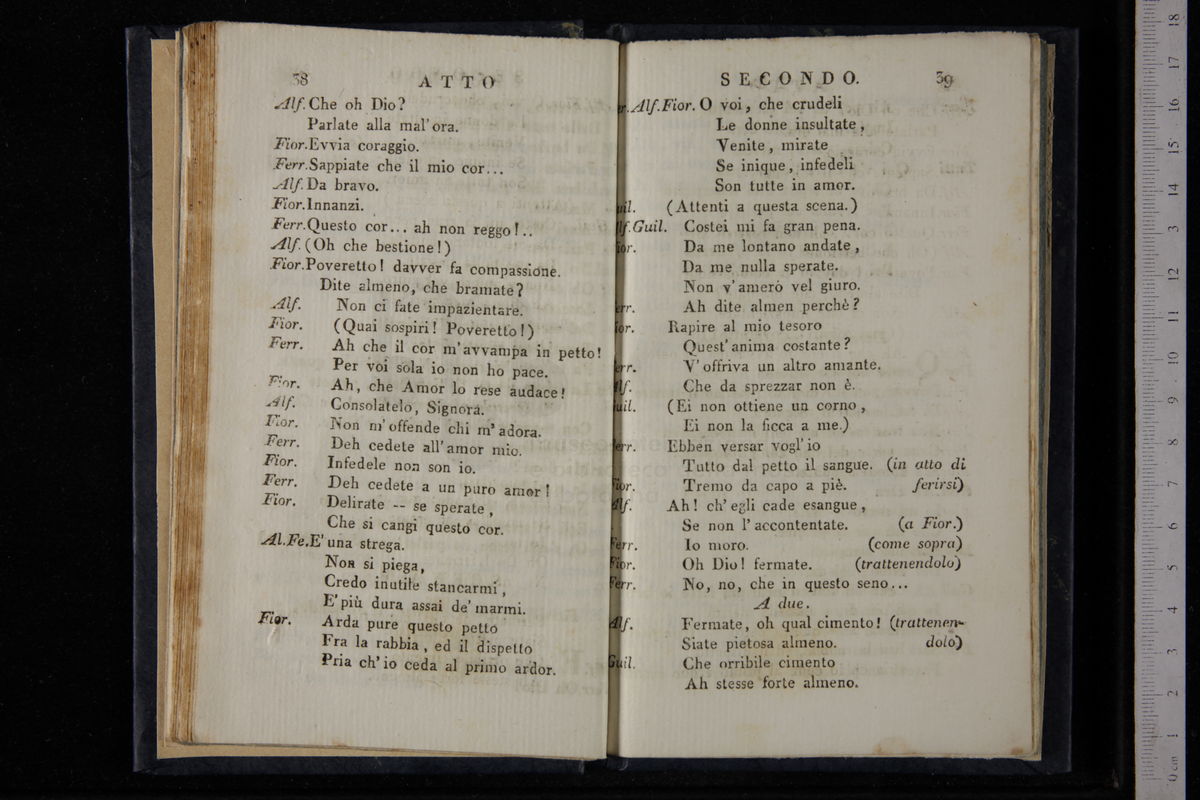 38 ATTO
Alf. Che oh Dio?
Parlate alla mal'ora.
Fior. Evvia coraggio.
Ferr. Sappiate che il mio cor...
Alf. Da bravo.
Fior. Innanzi.
Ferr. Questo cor... ah non reggo!..
Alf. (Oh che bestione!)
Fior. Poveretto! davver fa compassione.
Dite almeno, che bramate?
Alf. Non ci fate impazientare.
Fior. (Quai sospiri! Poveretto!)
Ferr. Ah che il cor m'avvampa in petto!
Per voi sola io non ho pace.
Fior. Ah, che Amor lo rese audace!
Alf. Consolatelo, Signora.
Fior. Non m'offende chi m'adora.
Ferr. Deh cedete all'amor mio.
Fior. Infedele non son io.
Ferr. Deh cedete a un puro amor!
Fior. Delirate -- se sperate,
Che si cangi questo cor.
Al.Fe. E' una strega.
Non si piega,
Credo inutile stancarmi,
E' più dura assai de' marmi.
Fior. Arda pure questo petto
Fra la rabbia, ed il dispetto
Pria ch'io ceda al primo ardor.
SECONDO. 39
r. Alf. Fior. O voi, che crudeli
Le donne insultate,
Venite, mirate
Se inique, infedeli
Son tutte in amor.
uil. (Attenti a questa scena.)
lf. Guil. Costei mi fa gran pena.
ior. Da me lontano andate,
Da me nulla sperate.
Non v'amerò vel giuro.
err. Ah dite almen perchè?
ior. Rapire al mio tesoro
Quest'anima costante?
err. V'offriva un altro amante.
lf. Che da sprezzar non è.
uil. (Ei non ottiene un corno,
Ei non la ficca a me.)
err. Ebben versar vogl'io
Tutto dal petto il sangue. (in atto di
Fior. Tremo da capo a piè. ferirsi)
Alf. Ah! ch'egli cade esangue,
Se non l'accontentate. (a Fior.)
Ferr. Io moro. (come sopra)
Fior. Oh Dio! fermate. (trattenendolo)
Ferr. No, no, che in questo seno...
A due.
Alf. Fermate, oh qual cimento! (trattenen-
Siate pietosa almeno. dolo)
Guil. Che orribile cimento
Ah stesse forte almeno.